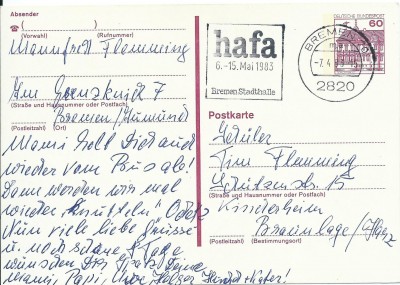 Absender
(Vorwahl) (Rufnummer)
Manfred Flemming
7
(Straße und Hausnummer oder Postfach)
Bremen /
(Postleitzahl) (Ort)
Mami holt Dich auch
wieder vom Bus ab!
Dann werden wir mal
wieder
Nun viele liebe Grüsse
u. noch schöne Tage
wünschen Dir Deine
Mami, Papi,
hafa
6.-15. Mai 1983
Bremen Stadthalle
BREMEN
2820
DEUTSCHE BUNDESPOST
60
Postkarte
Schüler
Tim Flemming
Schützenstr. 15
(Straße und Hausnummer oder Postfach)
Kinderheim
Braunlage/Harz
(Postleitzahl) (Bestimmungsort)